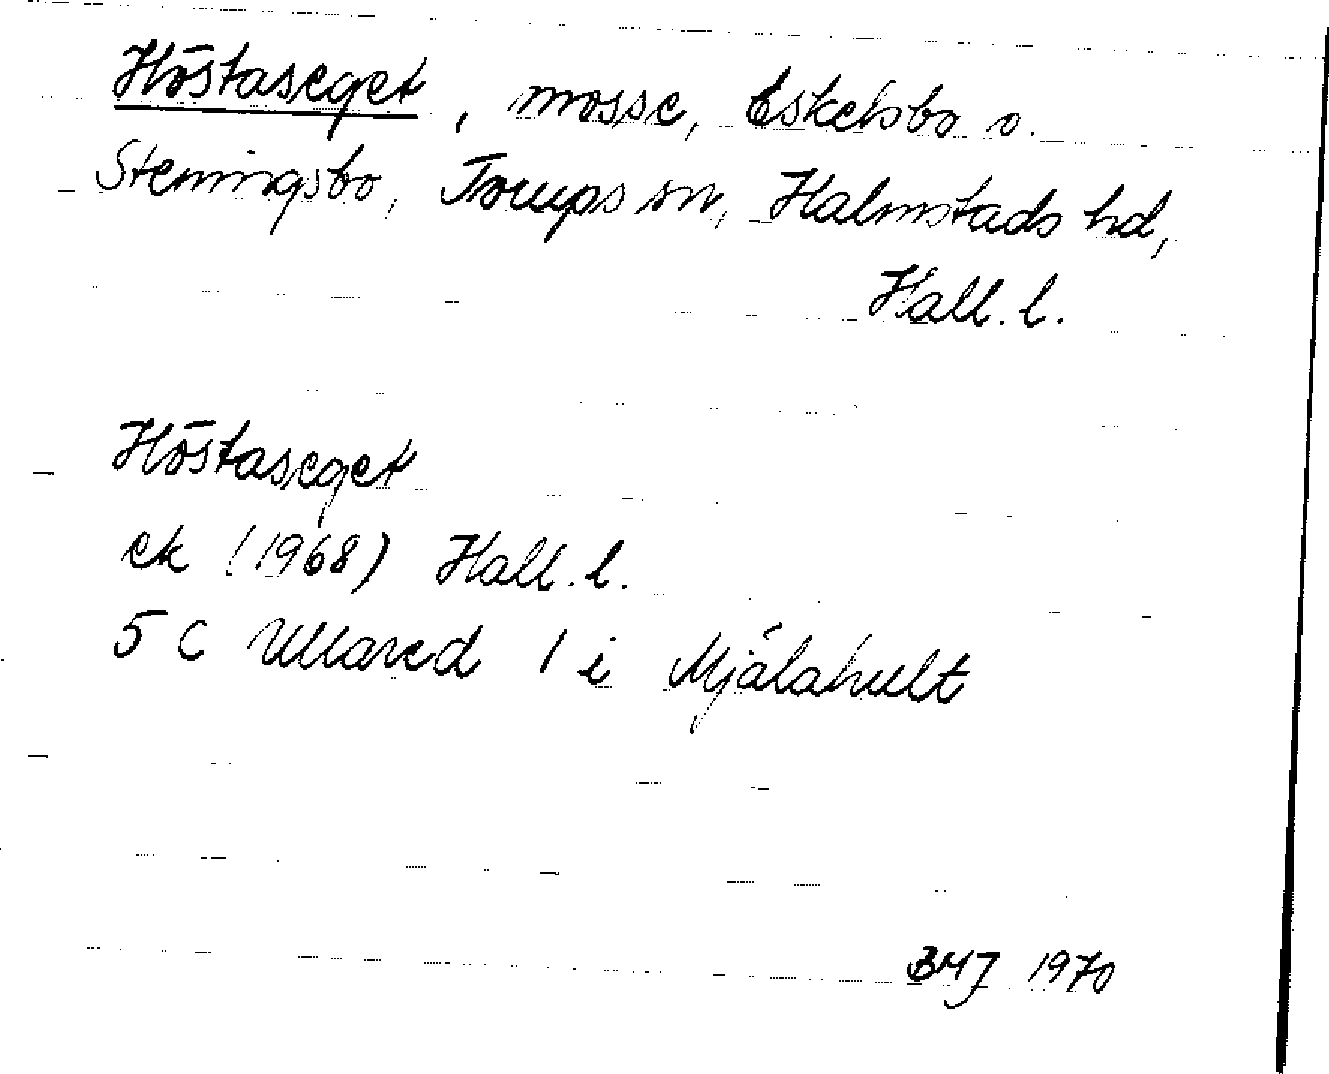 Höstaseget, mosse, Eskelsbo o.
Steningsbo, Torups sn, Halmstads hd,
Hall. l.
Höstaseget
ek (1968) Hall. l.
5 C Ullared 1 i Mjälahult
BMJ 1970